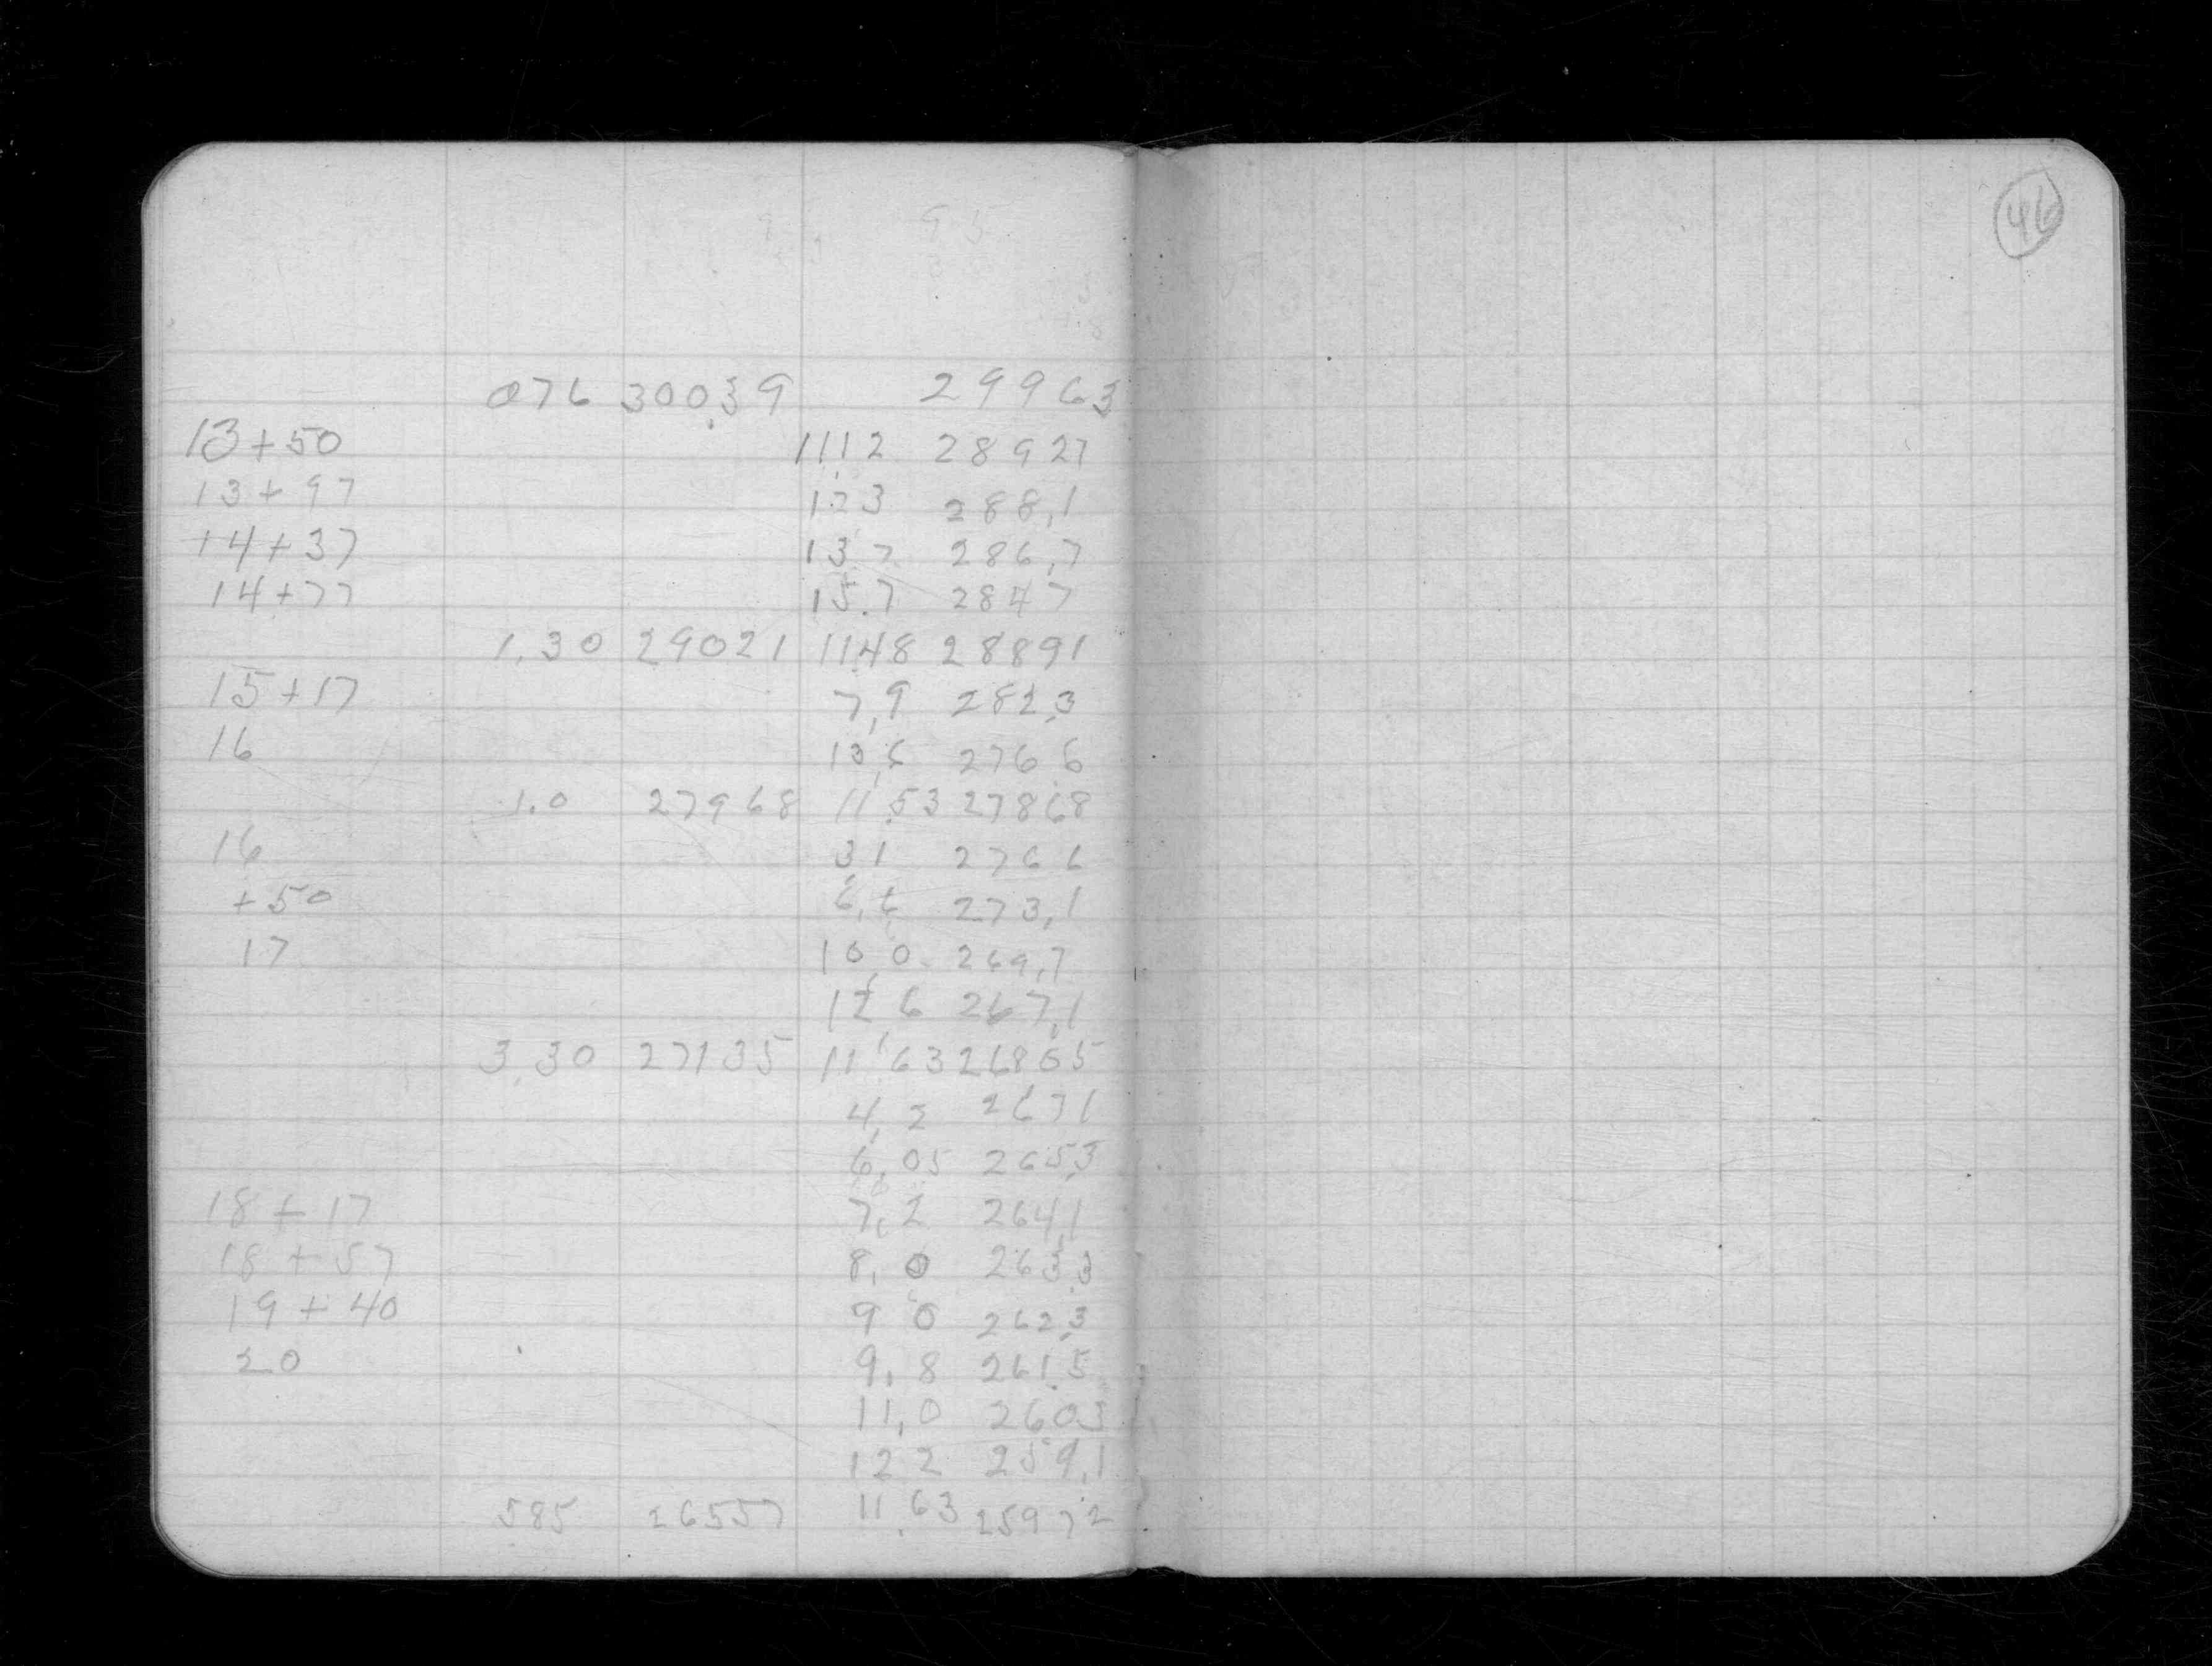 95
46
076 30039 29963
13+50 11,12 28927
13+97 12 3 288,1
14+37 13 7 286,7
14+77 15.7 284 7
1.30 29021 11.48 28891
15+17 7,9 282,3
16 13,6 276 6
1.0 27968 11.53 27868
16 3,1 276 6
+50 6,6 273,1
17 10,0 269,7
12 6 267,1
3.30 27135 11.63 26805
4,2 267 1
6,05 265,3
18+17 7,2 264,1
18+57 8,0 263,3
19+40 9 0 262,3
20 9,8 261,5
11,0 260,3
12 2 259,1
585 26557 11.63 25972